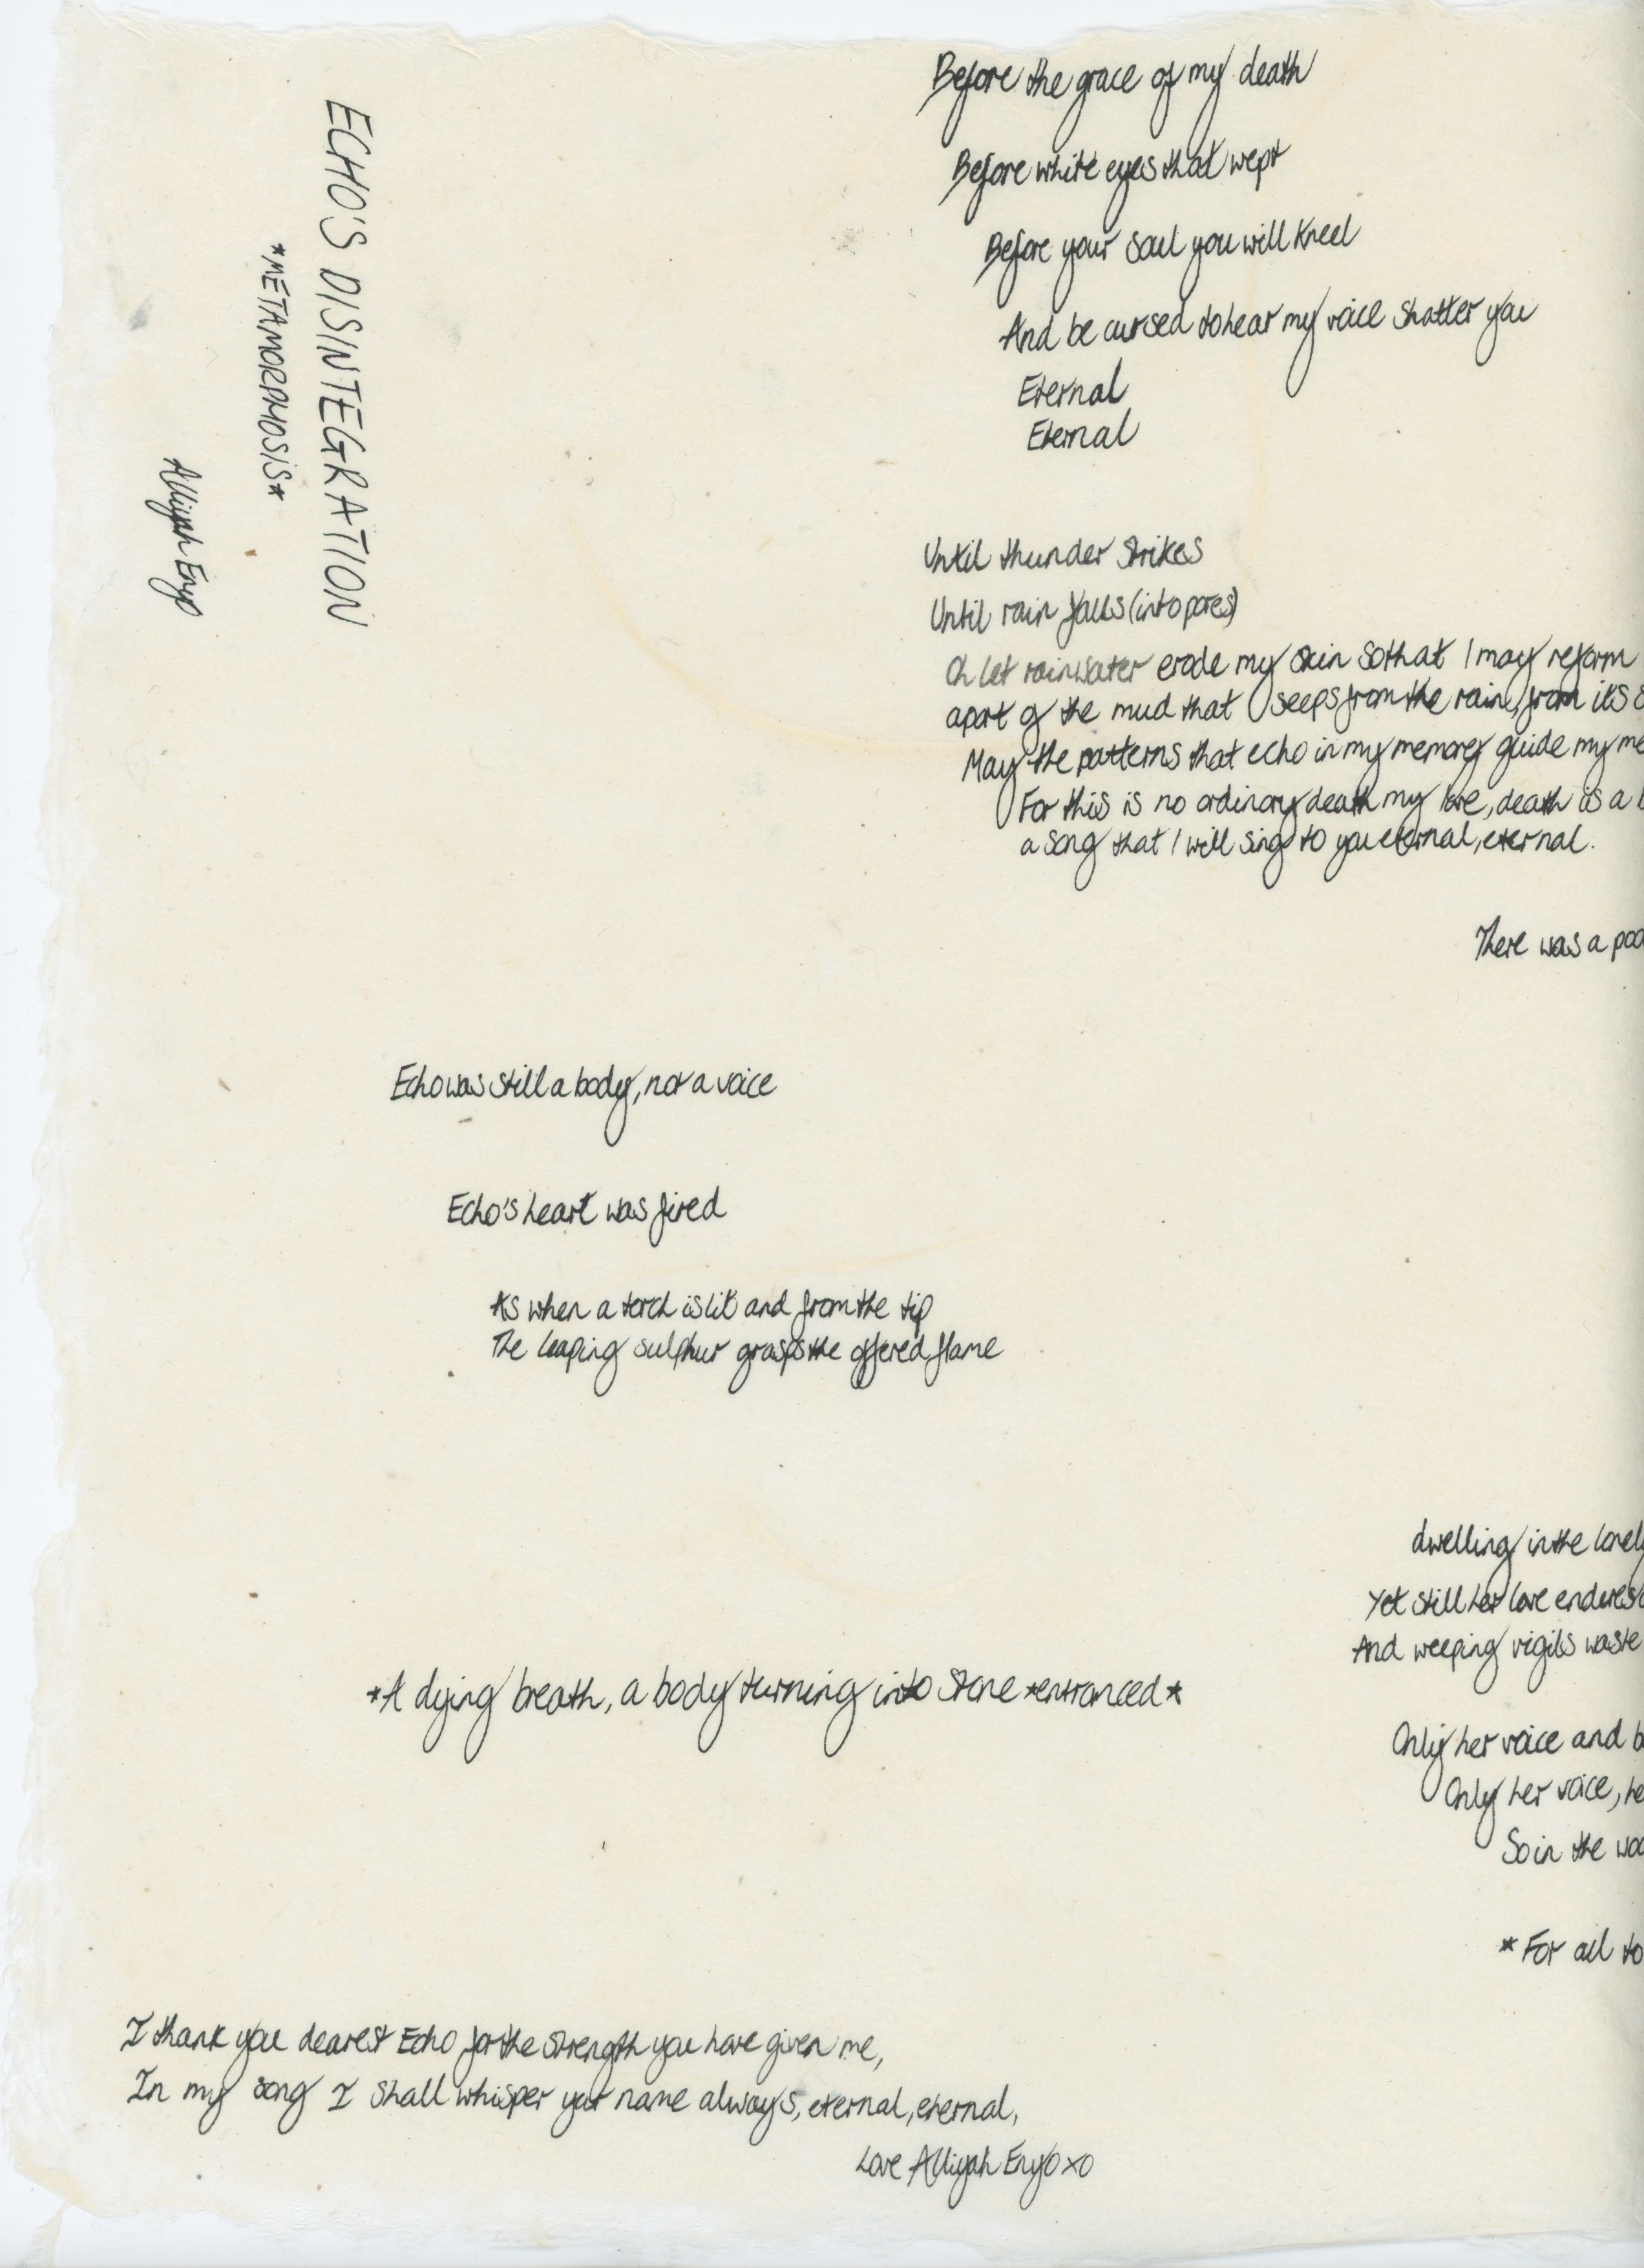 ECHO'S DISINTEGRATION
*METAMORPHOSIS*
Alliyah Enyo
Before the grace of my death
Before white eyes that wept
Before your soul you will kneel
And be cursed to hear my voice shatter you
Eternal
Eternal
Until thunder strikes
Until rain falls (into pores)
Oh let rainwater erode my skin so that I may reform
apart of the mud that seeps from the rain, from its
May the patterns that echo in my memory guide my me
For this is no ordinary death my love, death is a
a song that I will sing to you eternal, eternal.
There was a poo
Echo was still a body, not a voice
Echo's heart was fired
As when a torch is lit and from the tip
The leaping sulphur grasps the offered flame
dwelling in the lonely
Yet still her love endures
And weeping vigils waste
*A dying breath, a body turning into stone *entranced*
Only her voice and b
Only her voice, he
So in the woo
*For all to
I thank you dearest Echo for the strength you have given me,
In my song I shall whisper your name always, eternal, eternal,
Love Alliyah Enyo xo